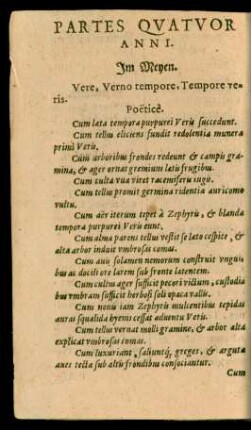 PARTES QVATVOR
ANNI.
Im Meyen.
Vere, Verno tempore, Tempore ve-
ris.
Poëticè.
Cum læta tempora purpurei Veris succedunt.
Cum tellus eliciens fundit redolentia munera
primi Veris.
Cum arboribus frondes redeunt & campis gra-
mina, & ager ornat gremium lætis frugibus.
Cum culta vua viret racemiferis iugis.
Cum tellus promit germina ridentia auricomo
vultu.
Cum aër iterum tepet à Zephyris, & blanda
tempora purpurei Veris eunt.
Cum alma parens tellus vestit se læto cespite, &
alta arbor induit vmbrosas comas.
Cum auis solamen nemorum construit virgul-
bus ac docili ore larem sub fronte latentem.
Cum cultus ager sufficit pecori victum, custodia
bus vmbram sufficit herbosi soli opaca vallis.
Cum nona iam Zephyris mulcentibus tepidas
auras squalida hyems cessat aduentu Veris.
Cum tellus vernat molli gramine, & arbor alta
explicat vmbrosas comas.
Cum luxuriant, saliuntq, greges, & arguta
aues tecta sub altis frondibus consociantur.
Cum